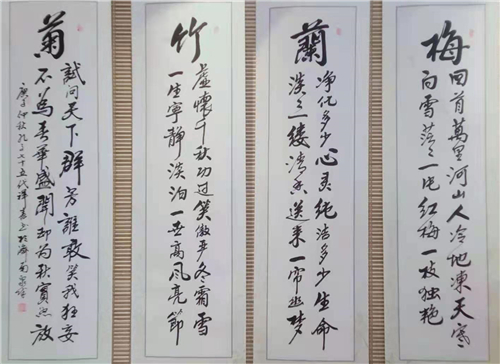 梅
回首萬里河山人冷地凍天寒
白雪茫々一片红梅一枝独艳
蘭
净化多少心灵纯洁多少生命
淡々一缕清香送来一帘幽梦
竹
虚懷千秋功过笑傲严冬霜雪
一生寧静淡泊一世高风亮節
菊
試问天下群芳誰敢笑我狂妄
不為春華盛開却为秋實怒放
庚子仲秋孔子七十五代祥